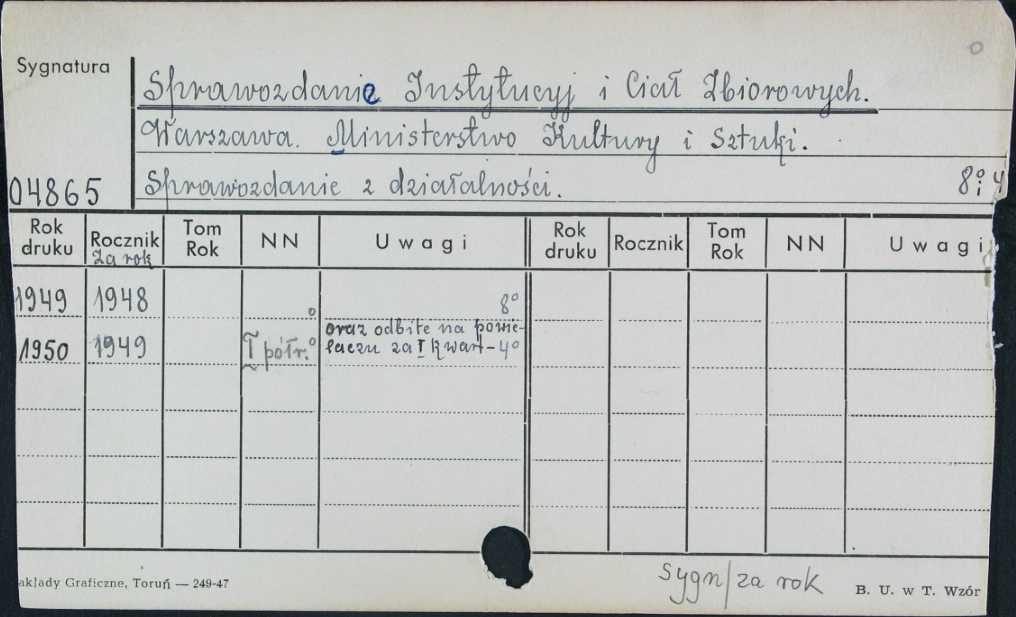 Sygnatura
Sprawozdanie Instytucyj i Ciał Zbiorowych.
Warszawa. Ministerstwo Kultury i Sztuki.
04865 Sprawozdanie z działalności. 8° i 4
Rok druku Rocznik Za rok Tom Rok NN Uwagi Rok druku Rocznik Tom Rok NN Uwagi
1949 1948 ° 8°
1950 1949 I półr.° oraz odbite na powie-
laczu za I kwart - 4°
Sygn/za rok
akłady Graficzne, Toruń — 249-47
B. U. w T. Wzór